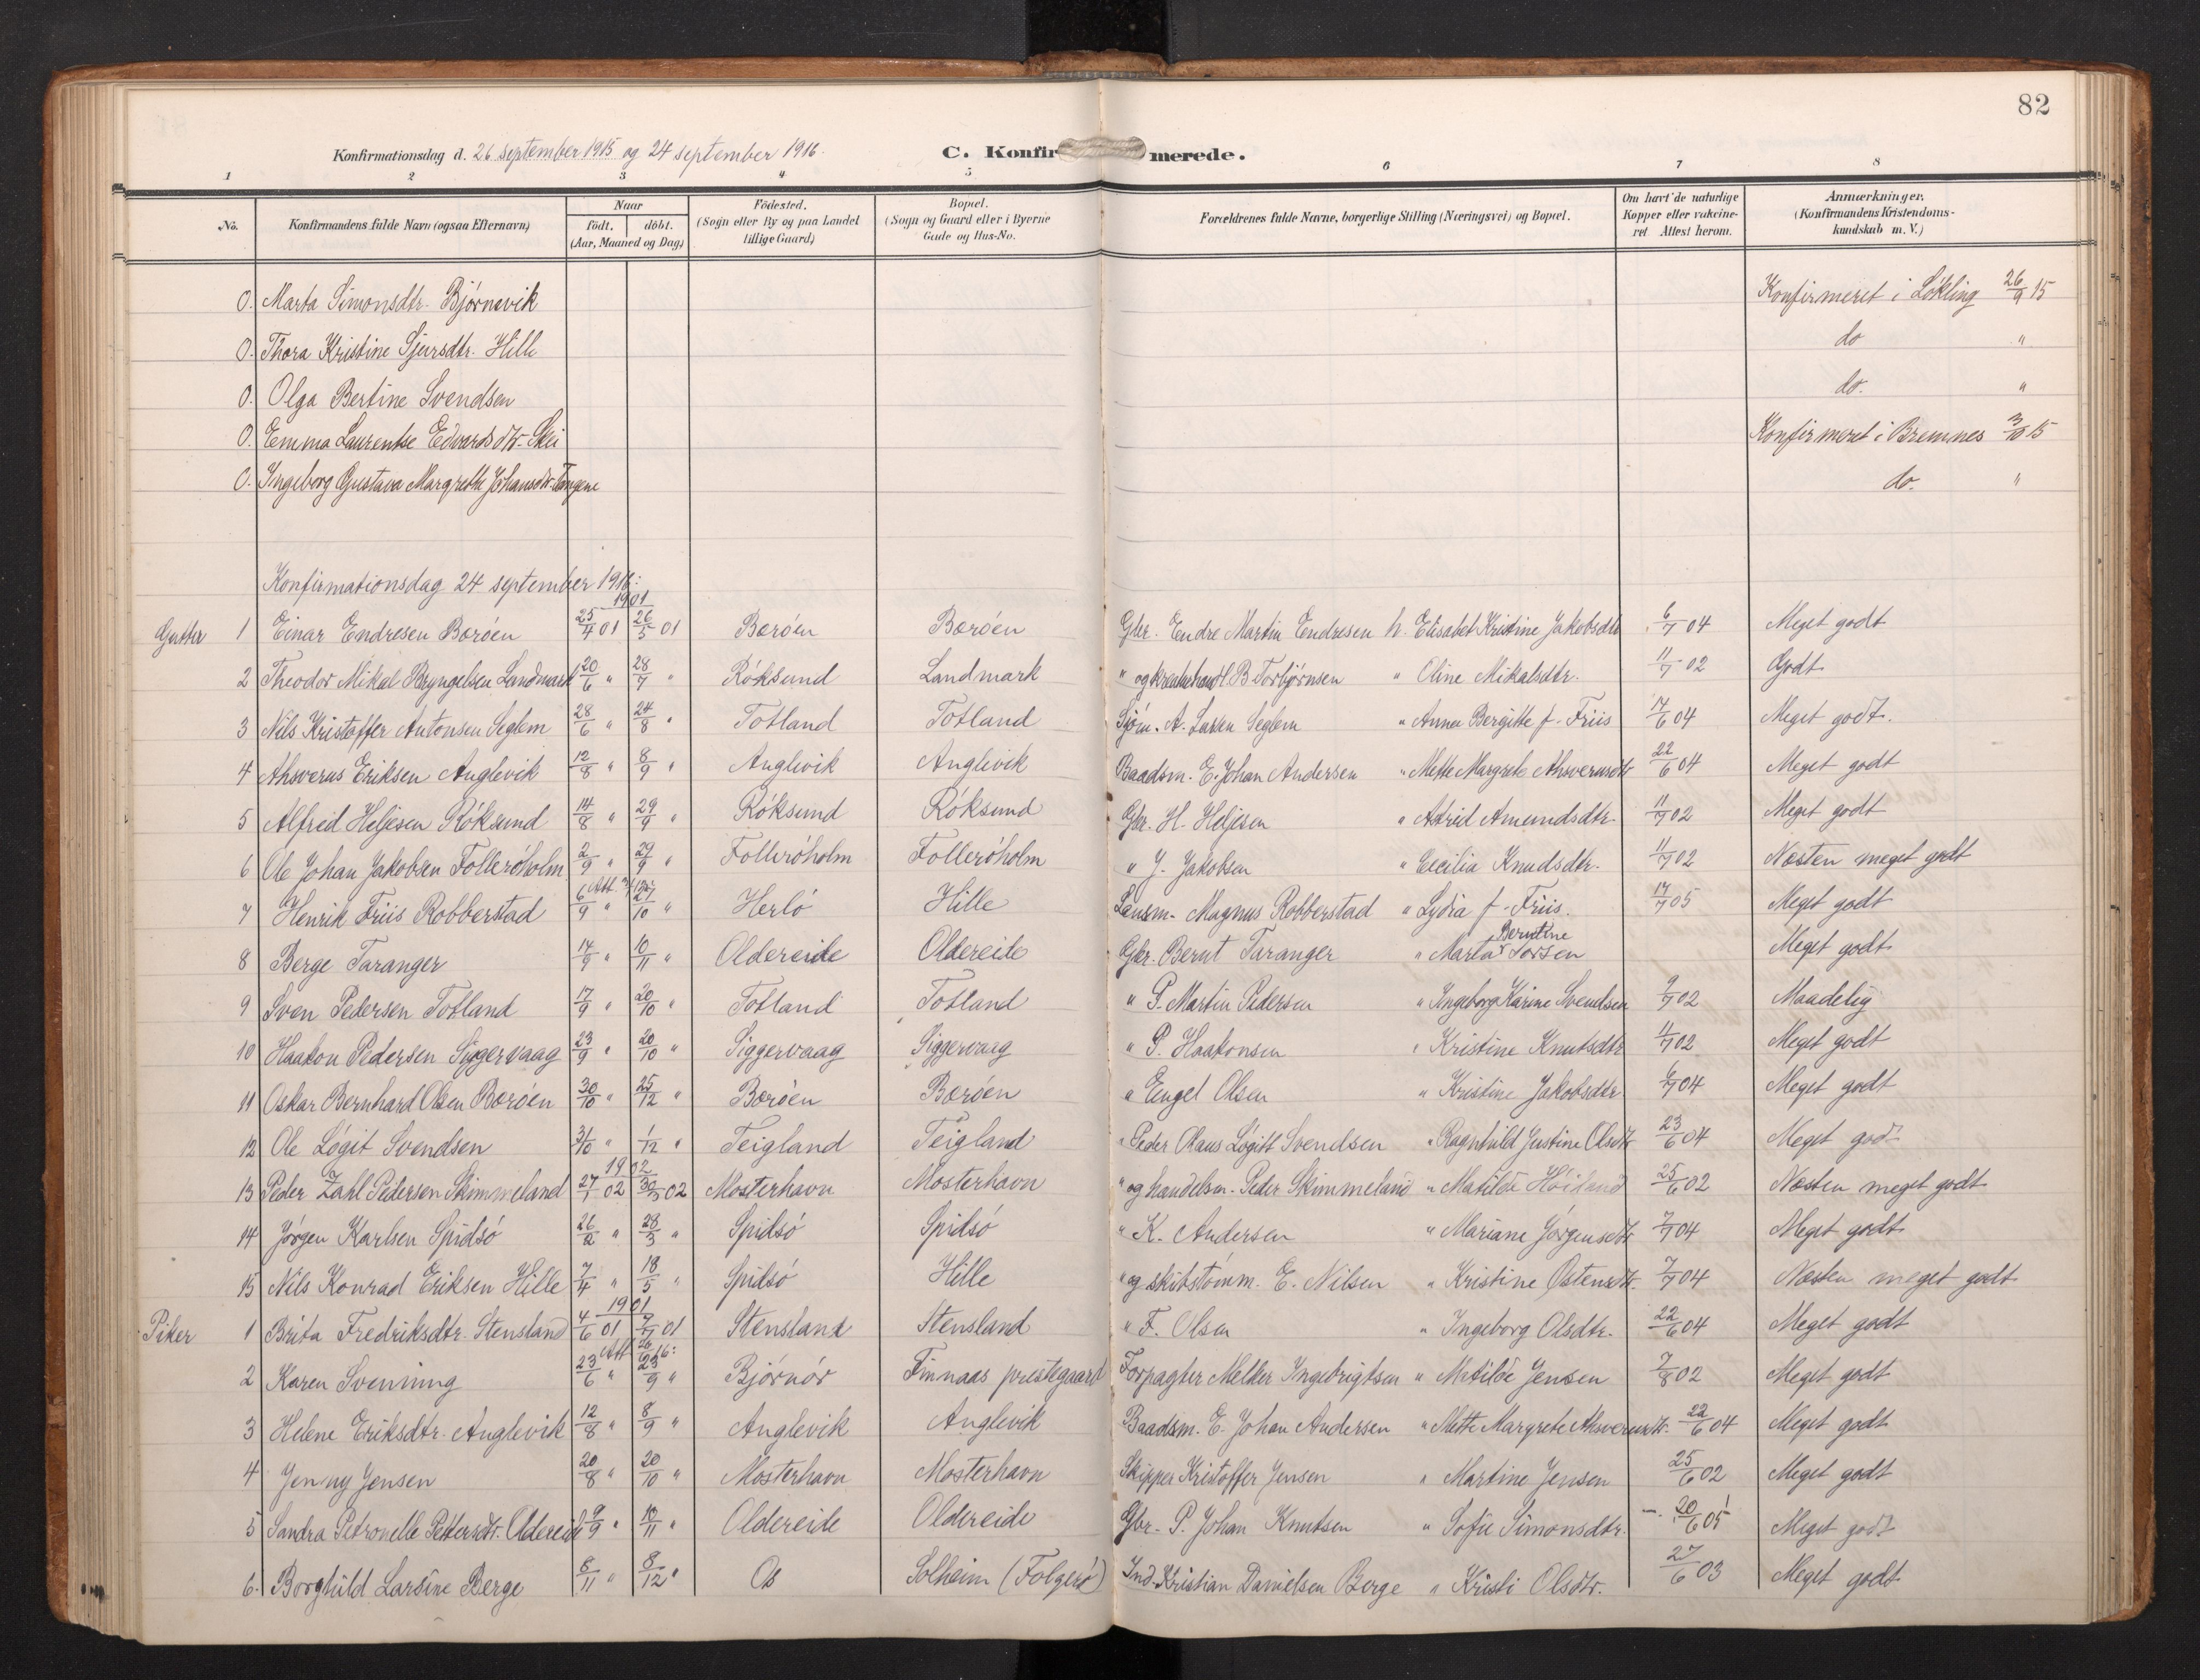 82
Konfirmationsdag d. 26 september 1915 og 24 september 1916. C. Konfirmerede.
1 2 3 4 5 6 7 8
No. Konfirmandens fulde Navn (ogsaa Efternavn) Naar födt. döbt. (Aar, Maaned og Dag) Födested. (Sogn eller By og paa Landet tillige Gaard) Bopæl. (Sogn og Gaard eller i Byerne Gade og Hus-No. Forældrenes fulde Navne, borgerlige Stilling (Næringsvei) og Bopæl. Om havt de naturlige Kopper eller vakcineret Attest herom. Anmærkninger. (Konfirmandens Kristendomskundskab m.V.)
0. Marta Simonsdtr. Bjørnevik Konfirmeret i Løkling 26/9 15
0. Thora Kristine Sjursdtr. Hille do "
0. Olga Bertine Svendsen do. "
0. Emma Laurentse Edvardsdtr. Skei Konfirmeret i Bremnes 3/10 15
0. Ingeborg Gustava Margrethe Johansdtr. do. "
Konfirmationsdag 24 september 1916:
1901
Gutter 1 Einar Endresen Børöen 25/4 01 26/5 01 Børöen Børöen Gbr. Endre Martin Endresen h. Elisabet Kristine Jakobsdtr 6/7 04 Meget godt
2 Theodor Mikal Bryngelsen Landmark 20/6 " 28/7 " Röksund Landmark " og kreaturhandl. B. Torbjørnsen " Oline Mikalsdtr. 11/7 02 Godt
3 Nils Kristoffer Antonsen Seglem 28/6 " 24/8 " Totland Totland Sjöm. A. Larsen Seglem " Anna Bergitte f. Friis 17/6 04 Meget godt.
4 Ahsverus Eriksen Anglevik 12/8 " 8/9 " Anglevik Anglevik Baadsm. E. Johan Andersen " Mette Margrete Ahsverusdtr 22/6 04 Meget godt
5 Alfred Heljesen Röksund 14/8 " 29/9 " Röksund Röksund Gbr. H. Heljesen " Astrid Amundsdtr. 11/7 02 Meget godt
6 Ole Johan Jakobsen Folleröholm 2/9 " 29/9 " Folleröholm Folleröholm " J. Jakobsen " Cecilia Knudsdtr. 11/7 02 Næsten meget godt
7 Henrik Friis Robberstad 6/9 " 27/10 " Herlö Hille Lensm. Magnus Robberstad " Lydia f. Friis. 17/7 05 Meget godt
8 Berge Taranger 14/9 " 10/11 " Oldereide Oldereide Gbr. Bernt Taranger " Marta Berntine Torsen Meget godt
9 Sven Pedersen Totland 17/9 " 20/10 " Totland Totland " P. Martin Pedersen " Ingeborg Karine Svendsen 9/7 02 Maadelig
10 Haakon Pedersen Siggervaag 23/9 " 20/10 " Siggervaag Siggervaag " P. Haakonsen " Kristine Knutsdtr 11/7 02 Meget godt
11 Oskar Bernhard Olsen Børöen 30/10 " 25/12 " Børöen Børöen " Engel Olsen " Kristine Jakobsdtr. 6/7 04 Meget godt
12 Ole Lögit Svendsen 31/10 " 1/12 " Teigland Teigland " Peder Olaus Lögitt Svendsen " Ragnhild Justine Olsdtr 23/6 04 Meget godt
1902
13 Peder Zahl Pedersen Skimmeland 27/1 02 30/3 02 Mosterhavn Mosterhavn " og handelsm. Peder Skimmeland " Matilde Höiland 25/6 02 Næsten meget godt
14 Jørgen Karlsen Spidsö 26/2 " 28/3 " Spidsö Spidsö " K. Andersen " Mariane Jørgensdtr 7/7 04 Meget godt
15 Nils Konrad Eriksen Hille 7/4 " 18/5 " Spidsö Hille " og skibstömm. E. Nilsen " Kristine Østensdtr. 7/7 04 Næsten meget godt
1901
Piker 1 Brita Fredriksdtr. Stensland 4/6 01 7/7 01 Stensland Stensland " F. Olsen " Ingeborg Olsdtr. 22/6 04 Meget godt
2 Karen Svenning 23/6 " 23/9 " Bjørnör Finnaas prestegaard Forpagter Melker Ingebrigtsen " Matilde Jensen 7/8 02 Meget godt
3 Helene Eriksdtr. Anglevik 12/8 " 8/9 " Anglevik Anglevik Baadsm. E. Johan Andersen " Mette Margrete Ahsverusdtr. 22/6 04 Meget godt
4 Jenny Jensen 20/8 " 20/10 " Mosterhavn Mosterhavn Skipper Kristoffer Jensen " Martine Jensen 25/6 02 Meget godt
5 Sandra Petronelle Pettersdtr. Oldereide 9/9 " 10/11 " Oldereide Oldereide Gbr. P. Johan Knutsen " Sofie Simonsdtr. 20/6 05 Meget godt
6. Borghild Larsine Berge 8/11 " 8/12 " Os Solheim (Folgerö) Ind. Kristian Danielsen Berge " Kristi Olsdtr. 27/6 03 Meget godt